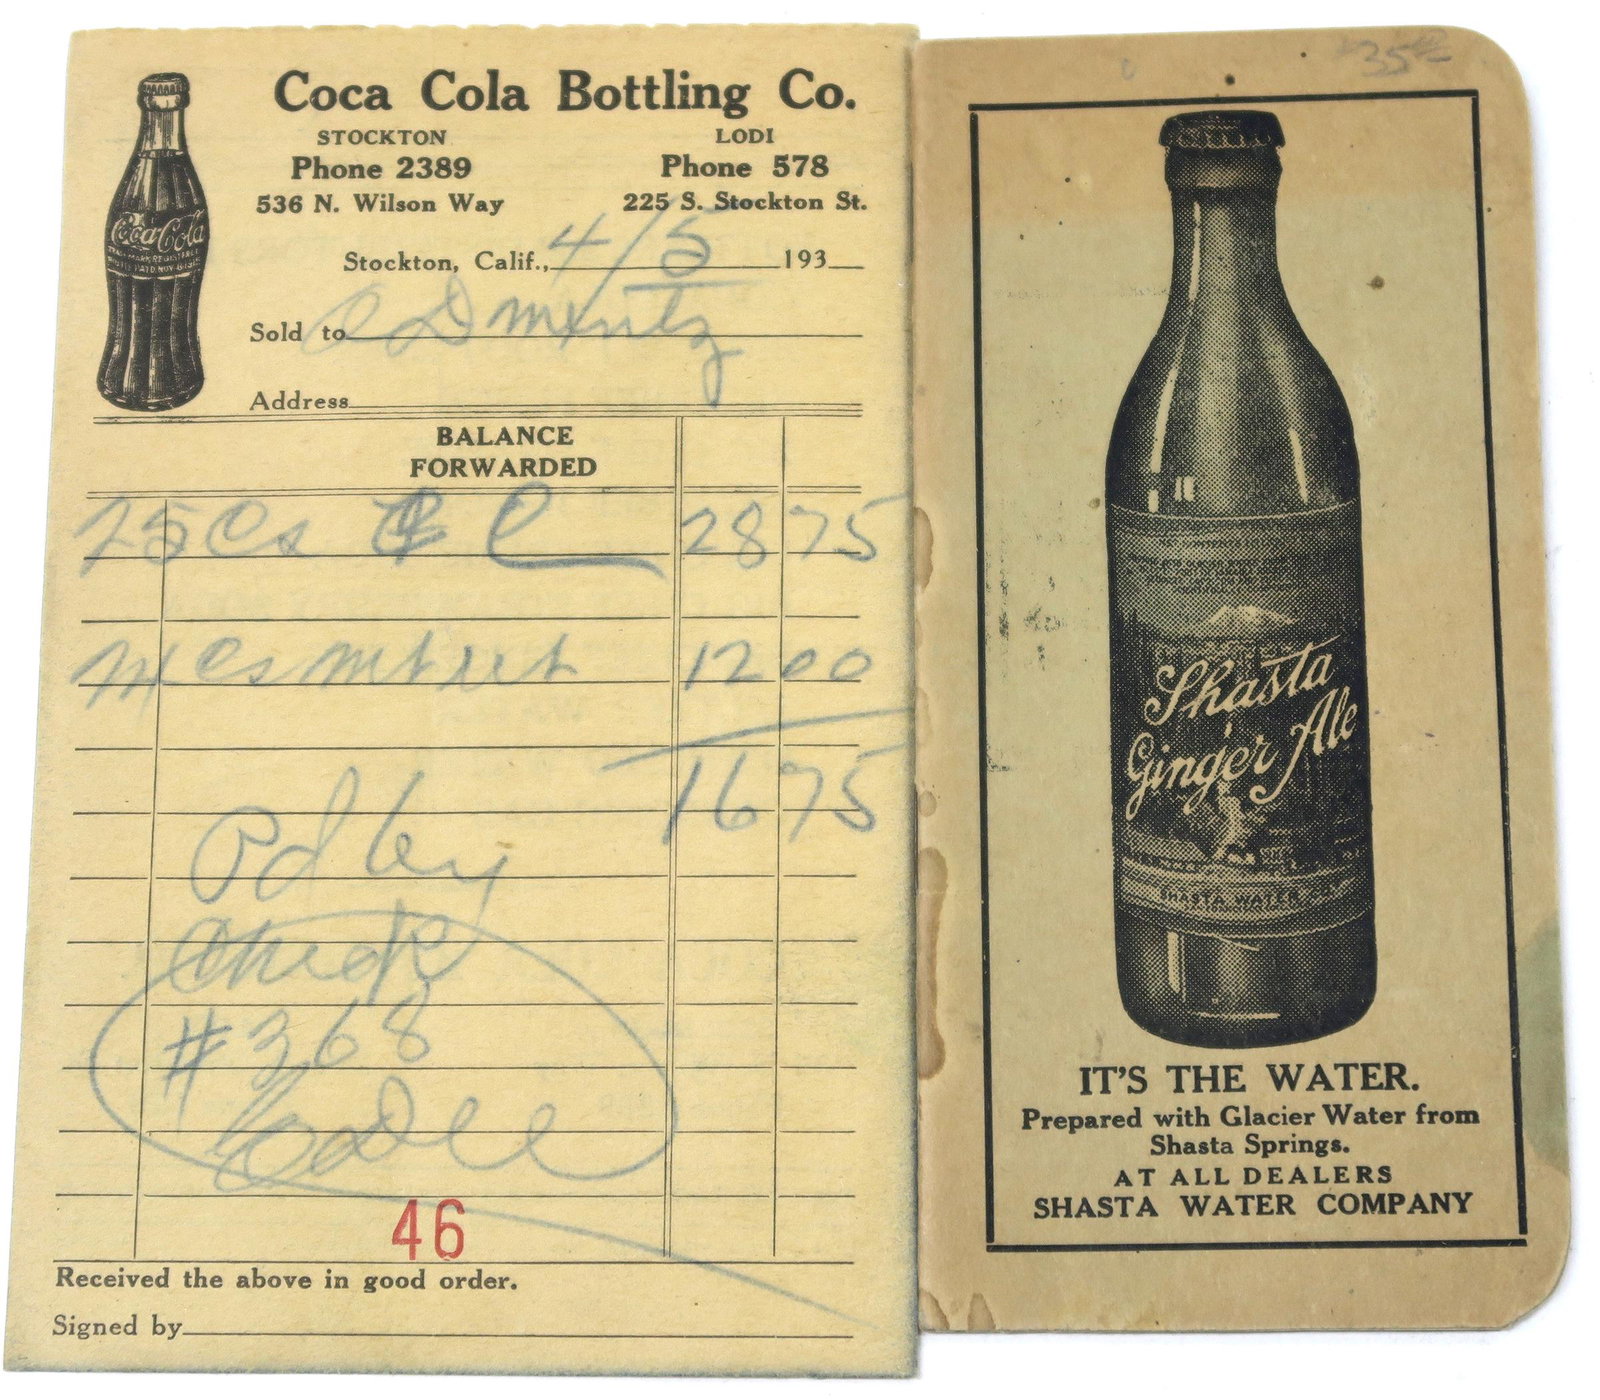 Coca Cola Bottling Co.
STOCKTON LODI
Phone 2389 Phone 578
536 N. Wilson Way 225 S. Stockton St.
Coca-Cola
Stockton, Calif., 4/5 193
Sold to
Address
BALANCE
FORWARDED
25 Cs 28 75
Cs 12 00
16 75
Pd by
Check
#368
46
Received the above in good order.
Signed by
35
Shasta
Ginger Ale
SHASTA WATER
IT'S THE WATER.
Prepared with Glacier Water from
Shasta Springs.
AT ALL DEALERS
SHASTA WATER COMPANY